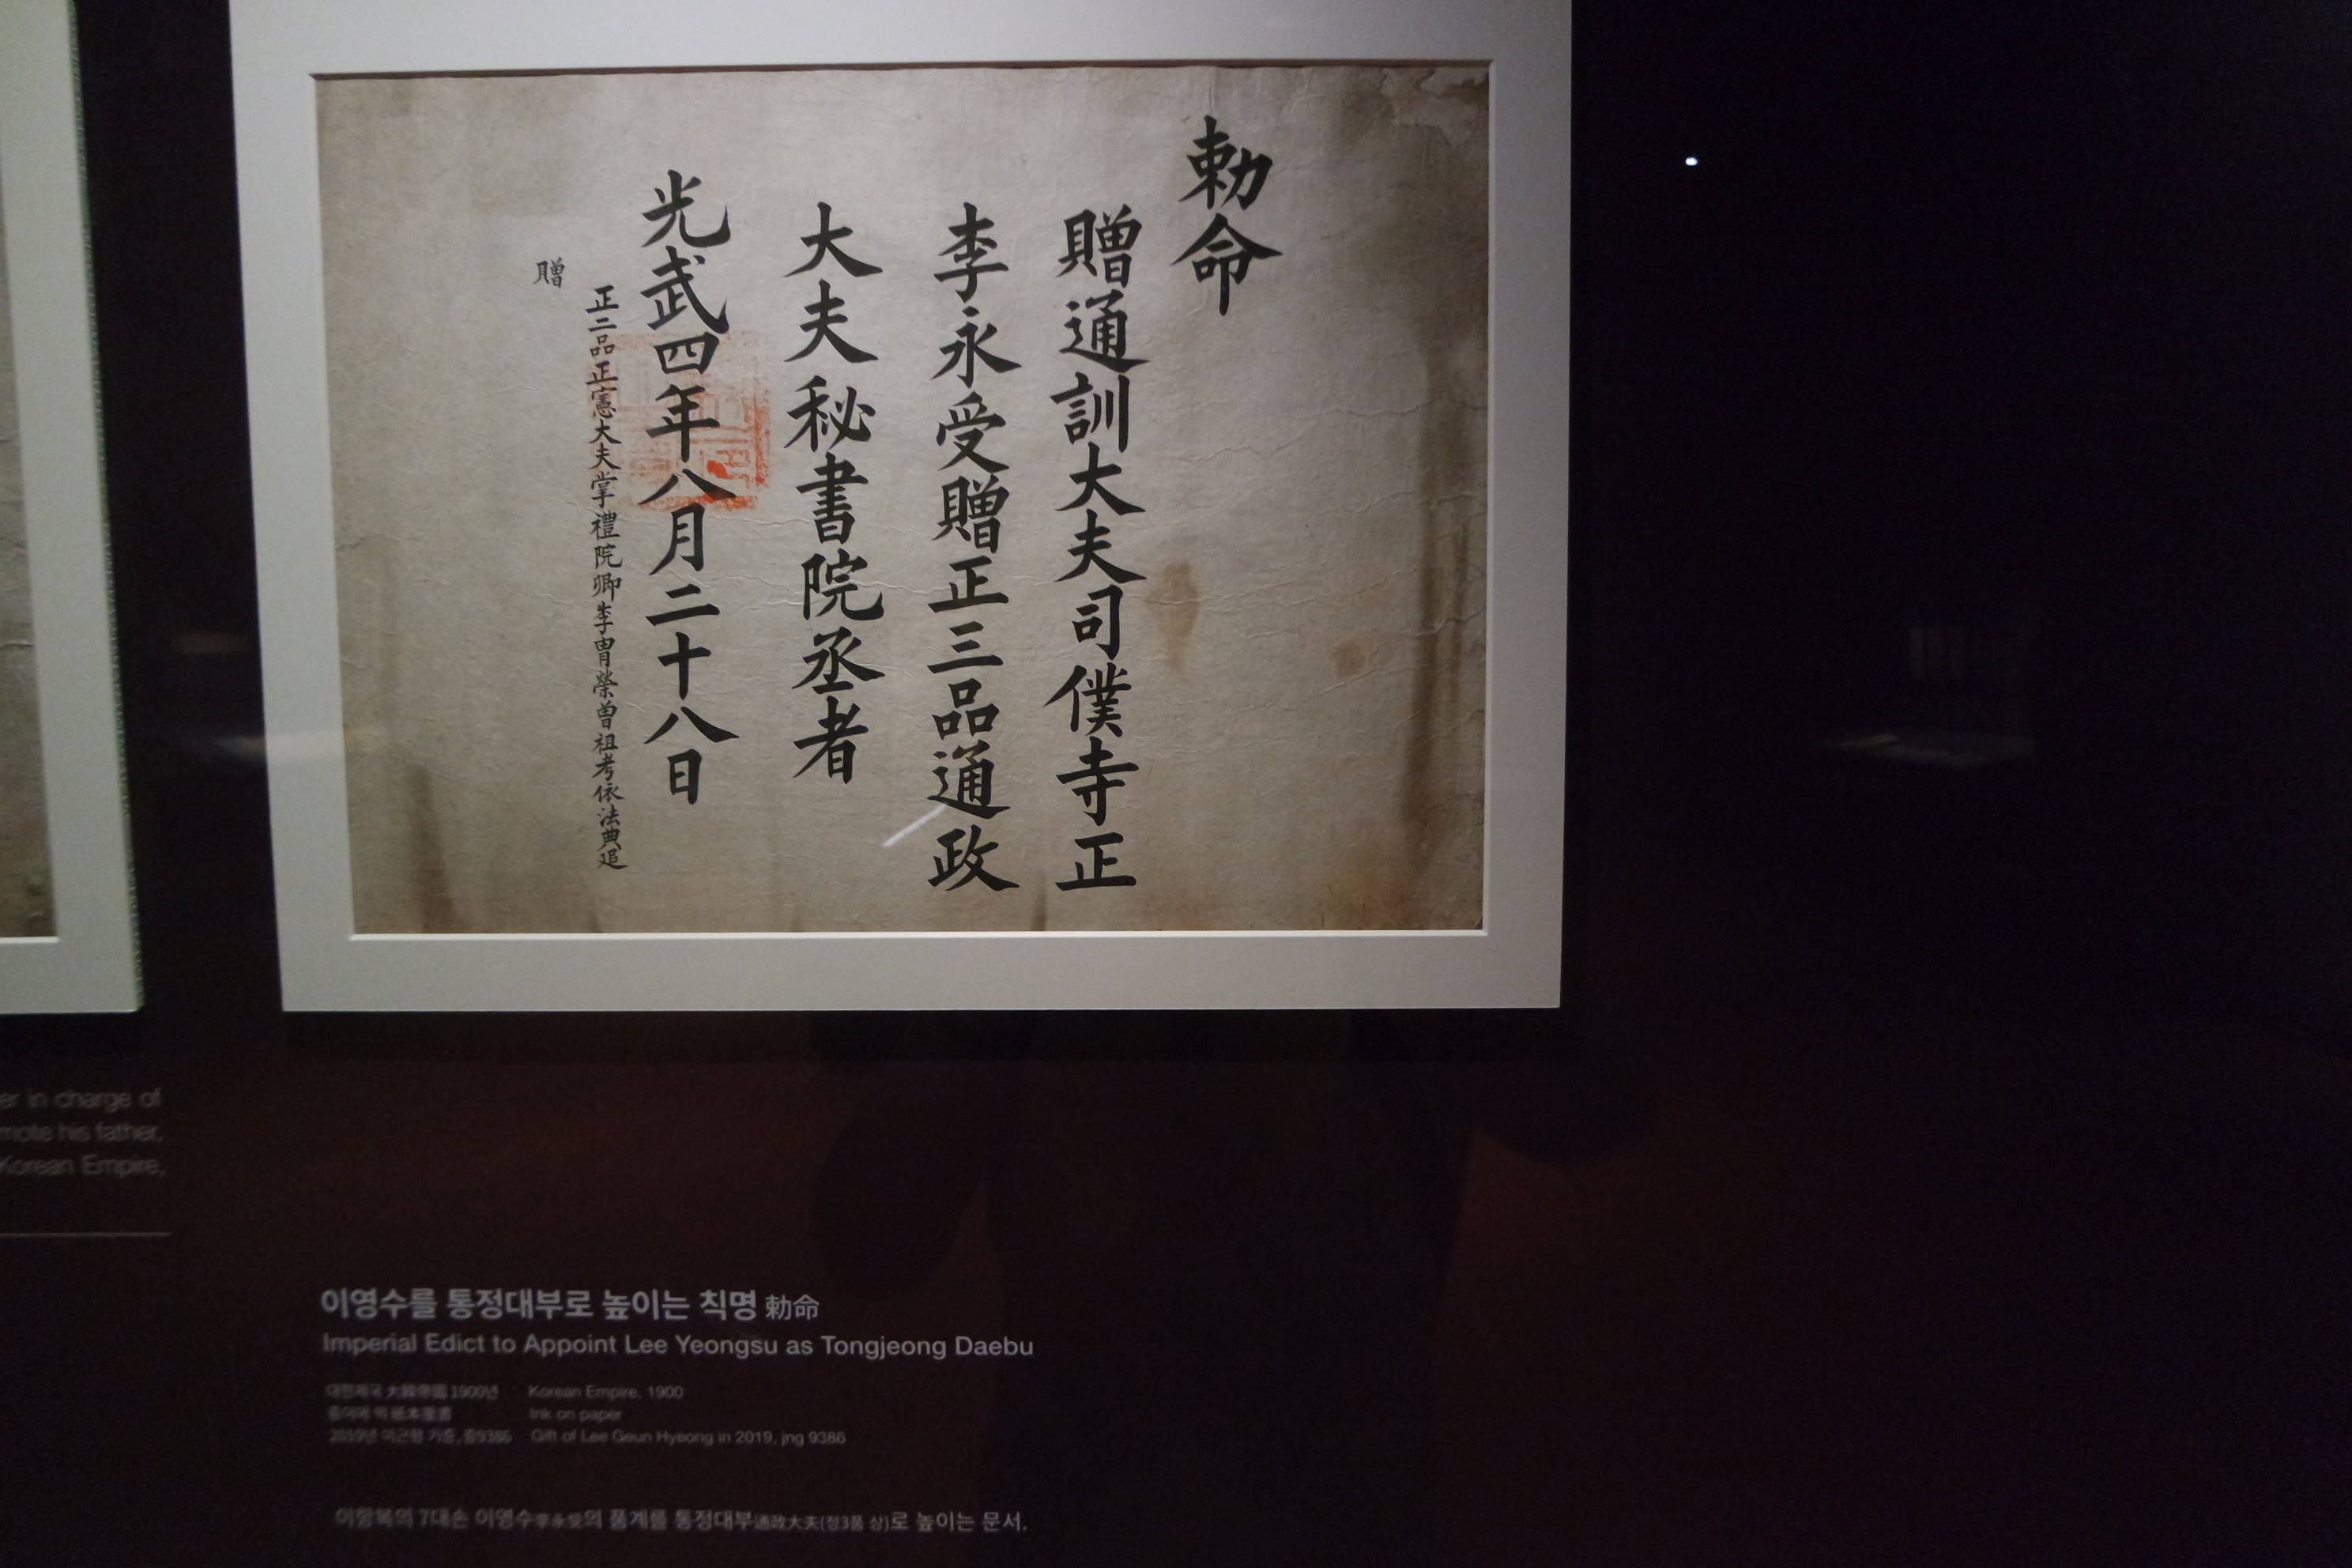 勅命
贈通訓大夫司僕寺正
李永受贈正三品通政
大夫秘書院丞者
光武四年八月二十八日
正二品正憲大夫掌禮院卿李冑榮曾祖考依法典追
贈
er in charge of
mote his father,
Korean Empire,
이영수를 통정대부로 높이는 칙명 勅命
Imperial Edict to Appoint Lee Yeongsu as Tongjeong Daebu
대한제국 大韓帝國 1900년 Korean Empire, 1900
종이에 먹 紙本墨書 Ink on paper
2019년 이근형 기증, 증9386 Gift of Lee Geun Hyeong in 2019, jng 9386
이항복의 7대손 이영수李永受의 품계를 통정대부通政大夫(정3품 상)로 높이는 문서.